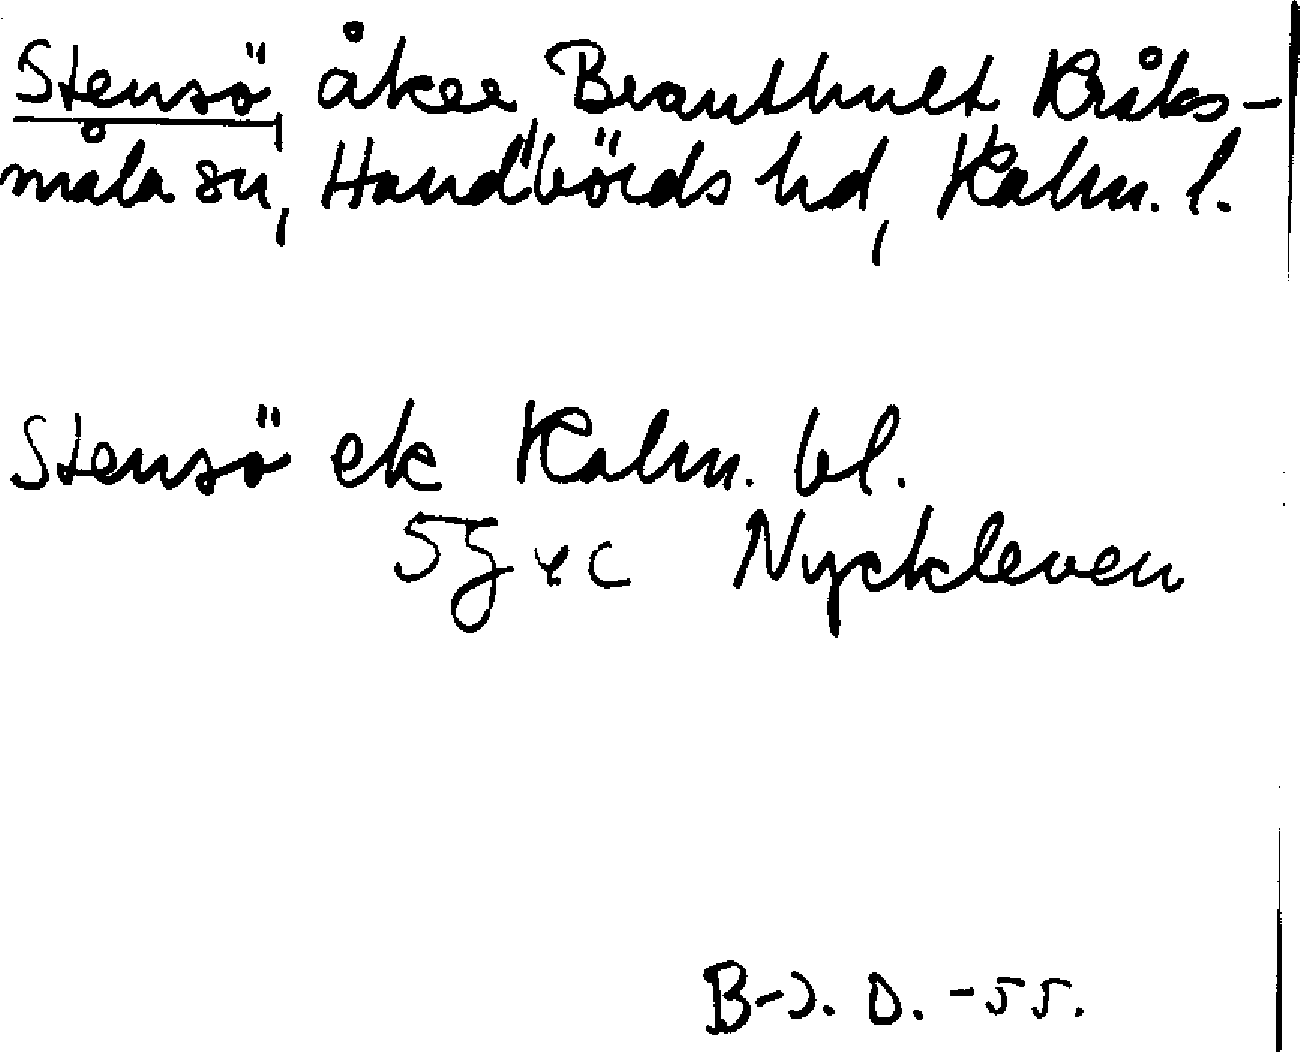 Stensö, åker Branthult Kråks-
måla sn, Handbörds hd, Kalm. l.
Stensö ek Kalm. bl.
5g Nyckleven
B-J. D. -55.